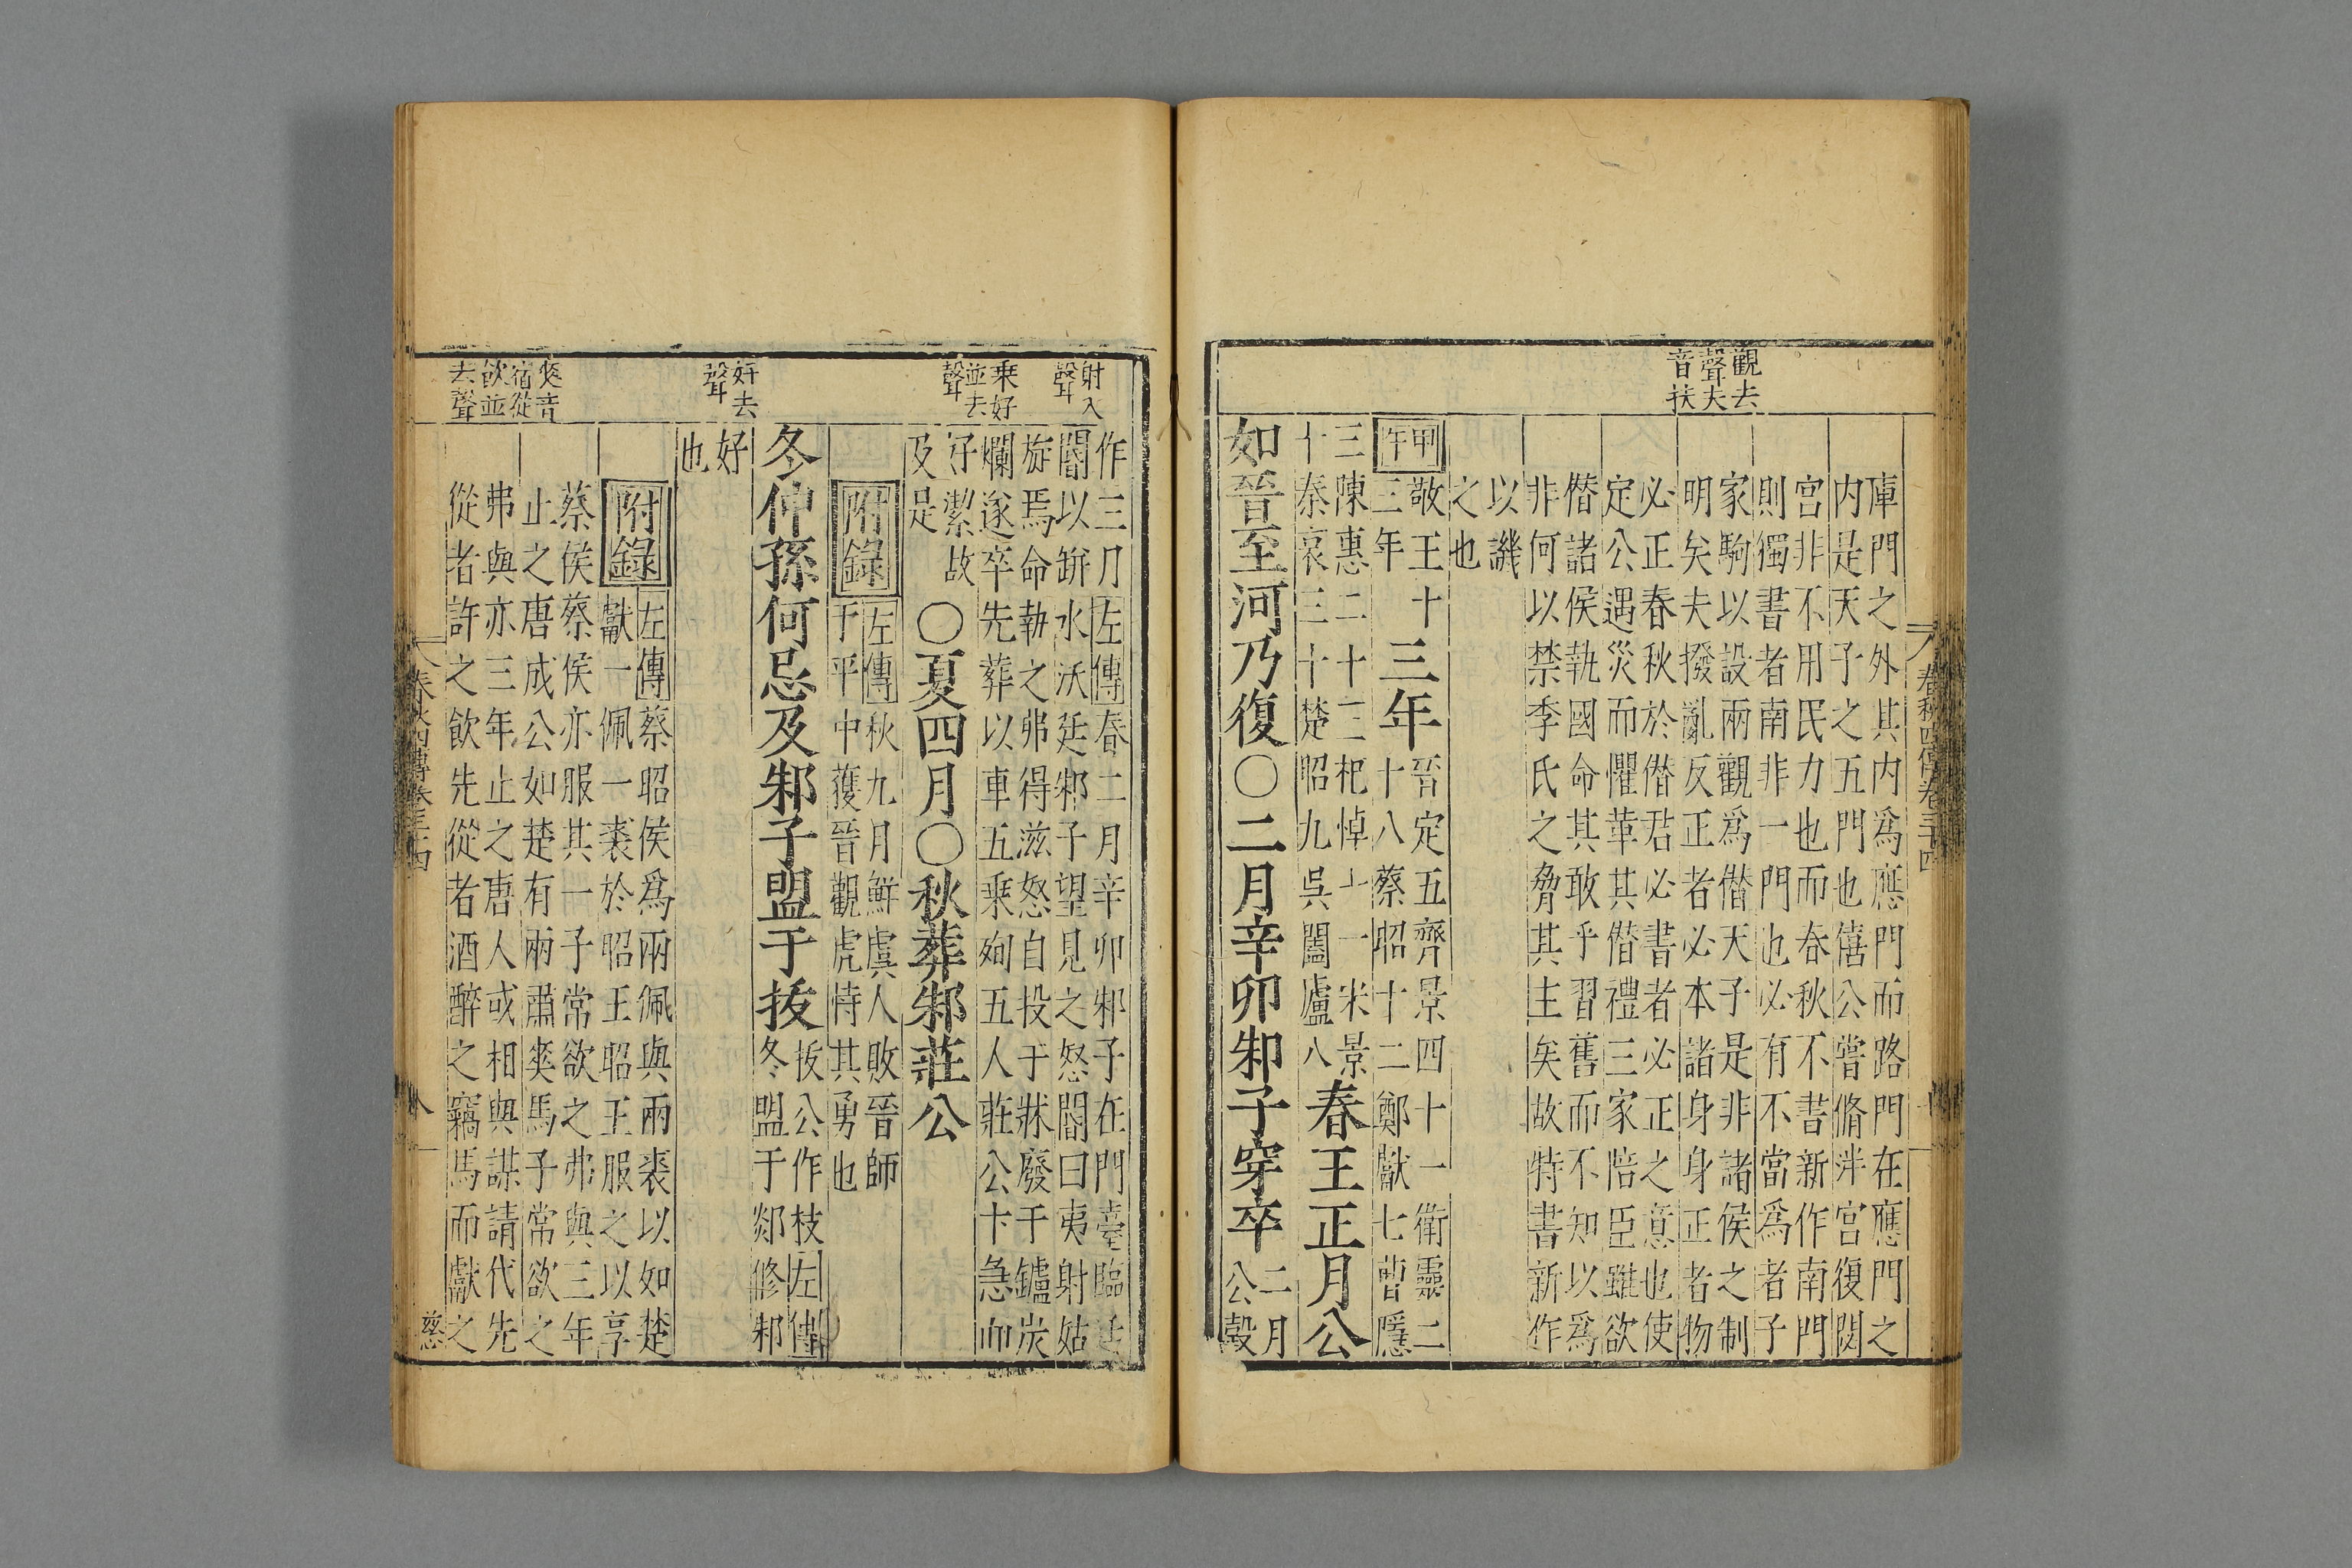 觀去
聲夫
音扶
庫門之外其内爲應門而路門在應門之
内是天子之五門也僖公嘗脩泮宫復閟
宫非不用民力也而春秋不書新作南門
則獨書者南非一門也必有不當爲者子
家駒以設兩觀爲僣天子是非諸侯之制
明矣夫撥亂反正者必本諸身身正者物
必正春秋於僣君必書者必正之意也使
定公遇災而懼革其僣禮三家陪臣雖欲
僣諸侯執國命其敢乎習舊而不知以爲
非何以禁季氏之脅其主矣故特書新作
以譏
之也
甲午
敬王十
三年
三年
晉定五齊景四十一衛靈二
十八蔡昭十二鄭獻七曹隱
三陳惠二十三杞悼十一宋景
十秦哀三十楚昭九吳闔廬八
春王正月公
如晉至河乃復○二月辛卯邾子穿卒
二月
公穀
春秋四傳卷三十四
射入
聲
乘好
並去
聲
好去
聲
爽音
宿從
飲並
去聲
作三月左傳春二月辛卯邾子在門臺臨廷
閽以缾水沃廷邾子望見之怒閽曰夷射姑
旋焉命執之弗得滋怒自投于牀廢于鑪炭
爛遂卒先葬以車五乘殉五人莊公卞急而
好潔故
及是
○夏四月○秋葬邾莊公
附錄
左傳秋九月鮮虞人敗晉師
于平中獲晉觀虎恃其勇也
冬仲孫何忌及邾子盟于拔
拔公作枝左傳
冬盟于郯修邾
好
也
附錄
左傳蔡昭侯爲兩佩與兩裘以如楚
獻一佩一裘於昭王昭王服之以享
蔡侯蔡侯亦服其一子常欲之弗與三年
止之唐成公如楚有兩肅爽馬子常欲之
弗與亦三年止之唐人或相與謀請代先
從者許之飲先從者酒醉之竊馬而獻之
春秋四傳卷三十四
八
慈